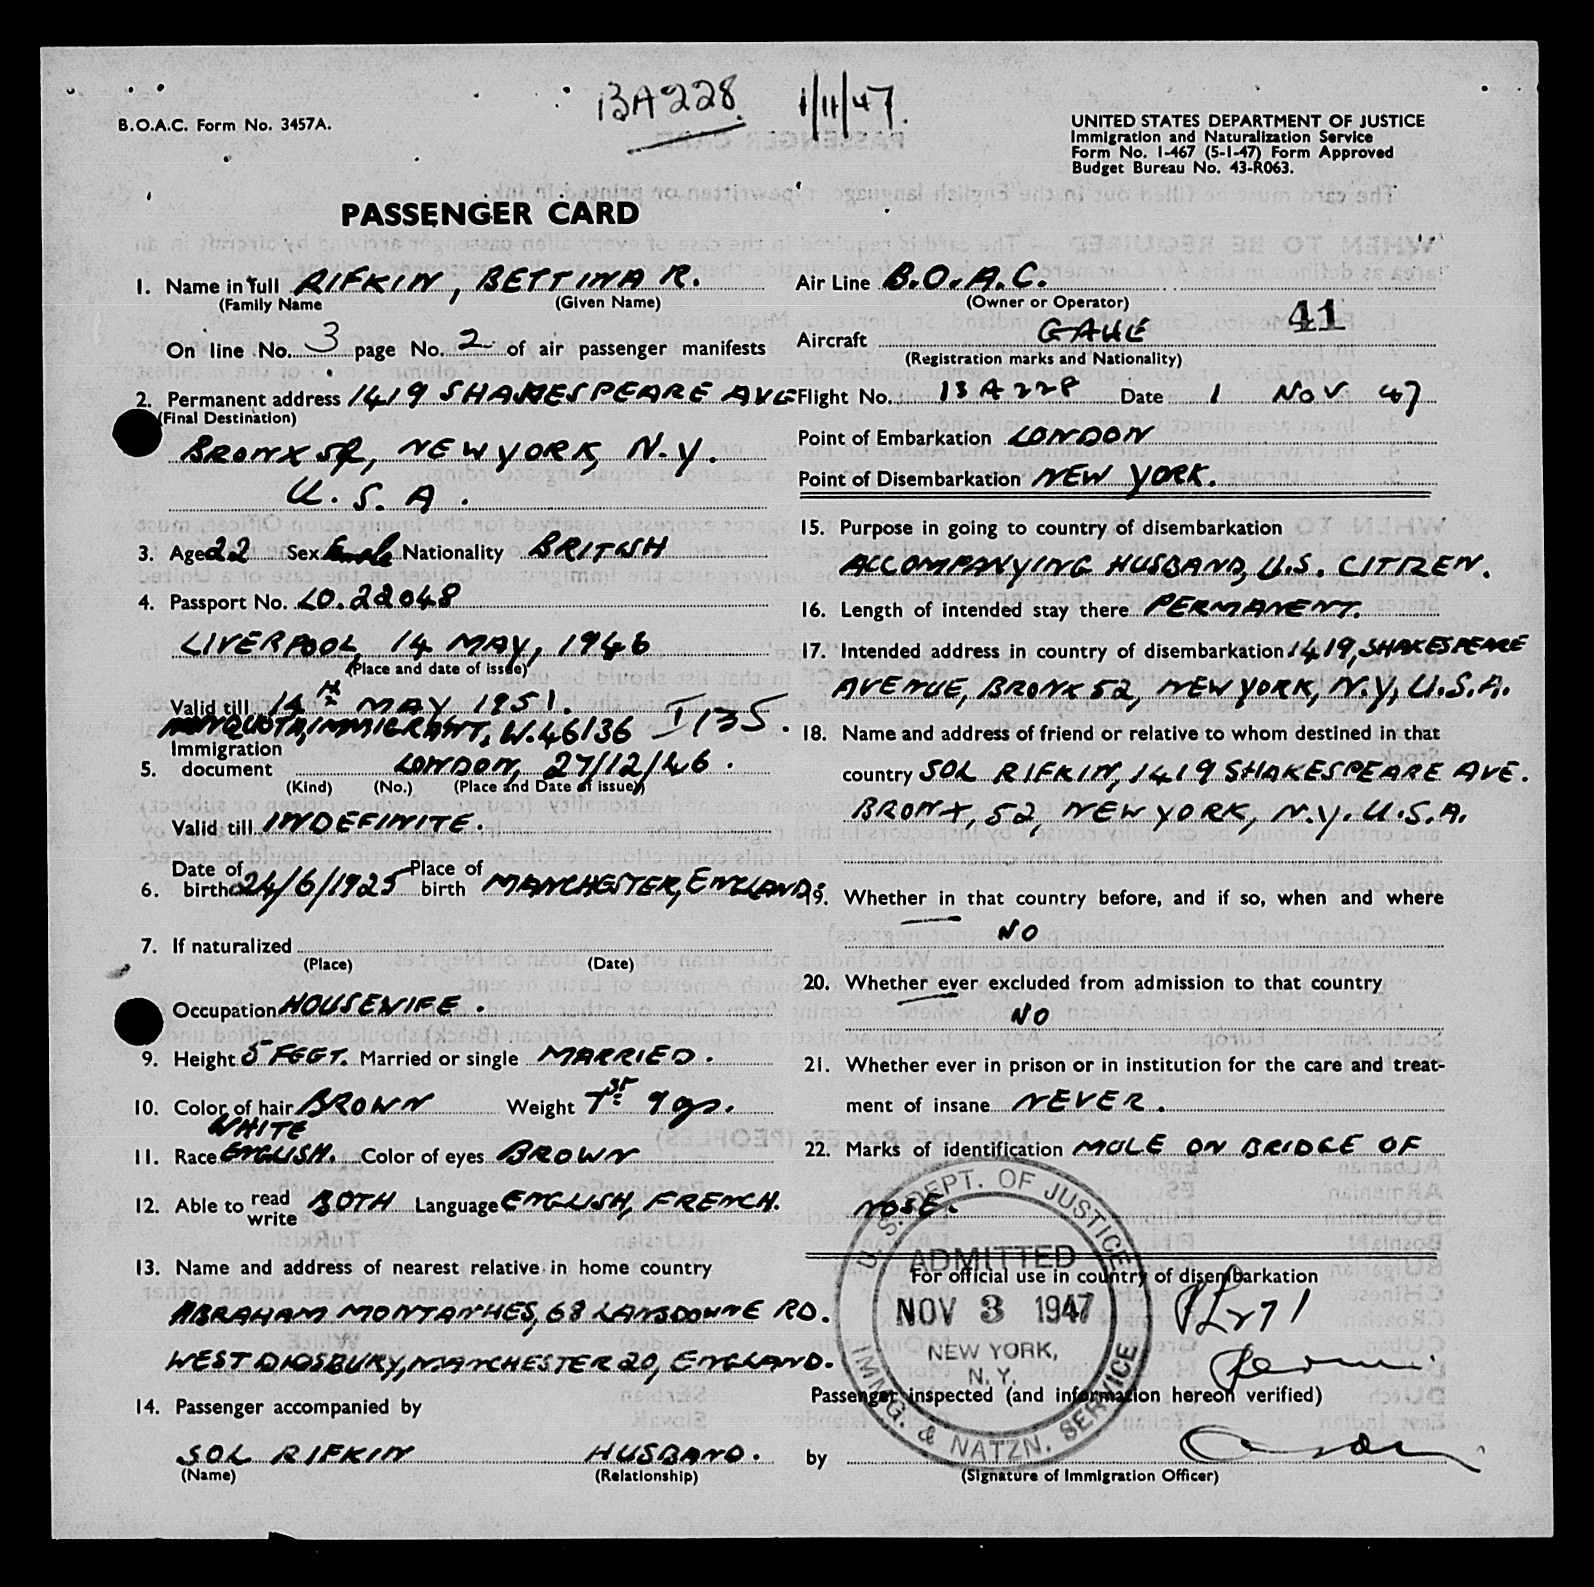 BA228 1/11/47.
B.O.A.C. Form No. 3457A.
UNITED STATES DEPARTMENT OF JUSTICE
Immigration and Naturalization Service
Form No. I-467 (5-1-47) Form Approved
Budget Bureau No. 43-R063.
PASSENGER CARD
1. Name in full RIFKIN, BETTINA R.
(Family Name (Given Name)
On line No. 3 page No. 2 of air passenger manifests
2. Permanent address 1419 SHAKESPEARE AVE
(Final Destination)
BRONX 52, NEW YORK, N.Y.
U.S.A.
3. Age 22 Sex Female Nationality BRITISH
4. Passport No. LO.22048
LIVERPOOL, 14 MAY, 1946
(Place and date of issue)
Valid till 14TH MAY 1951.
NONQUOTA, IMMIGRANT, W.46136 I 135.
Immigration
5. document LONDON, 27/12/46.
(Kind) (No.) (Place and Date of issue)
Valid till INDEFINITE.
6. Date of birth 24/6/1925 Place of birth MANCHESTER, ENGLAND.
7. If naturalized
(Place) (Date)
Occupation HOUSEWIFE.
9. Height 5 FEET. Married or single MARRIED.
10. Color of hair BROWN Weight 7ST 9
WHITE
11. Race ENGLISH. Color of eyes BROWN
12. Able to read write BOTH Language ENGLISH, FRENCH.
13. Name and address of nearest relative in home country
ABRAHAM MONTANHES, 68 LANSDOWNE RD.
WEST DIDSBURY, MANCHESTER 20, ENGLAND.
14. Passenger accompanied by
SOL RIFKIN HUSBAND.
(Name) (Relationship)
Air Line B.O.A.C.
(Owner or Operator)
41
Aircraft GAKE
(Registration marks and Nationality)
Flight No. BA228 Date 1 NOV 47
Point of Embarkation LONDON
Point of Disembarkation NEW YORK.
15. Purpose in going to country of disembarkation
ACCOMPANYING HUSBAND, U.S. CITIZEN.
16. Length of intended stay there PERMANENT.
17. Intended address in country of disembarkation 1419, SHAKESPEARE
AVENUE, BRONX 52, NEW YORK, N.Y, U.S.A.
18. Name and address of friend or relative to whom destined in that
country SOL RIFKIN, 1419 SHAKESPEARE AVE.
BRONX, 52, NEW YORK, N.Y. U.S.A.
19. Whether in that country before, and if so, when and where
NO
20. Whether ever excluded from admission to that country
NO
21. Whether ever in prison or in institution for the care and treat-
ment of insane NEVER.
22. Marks of identification MOLE ON BRIDGE OF
NOSE.
U. S. DEPT. OF JUSTICE
ADMITTED
For official use in country of disembarkation
NOV 3 1947
NEW YORK,
N. Y.
IMMG. & NATZN. SERVICE
Passenger inspected (and information hereon verified)
by
(Signature of Immigration Officer)